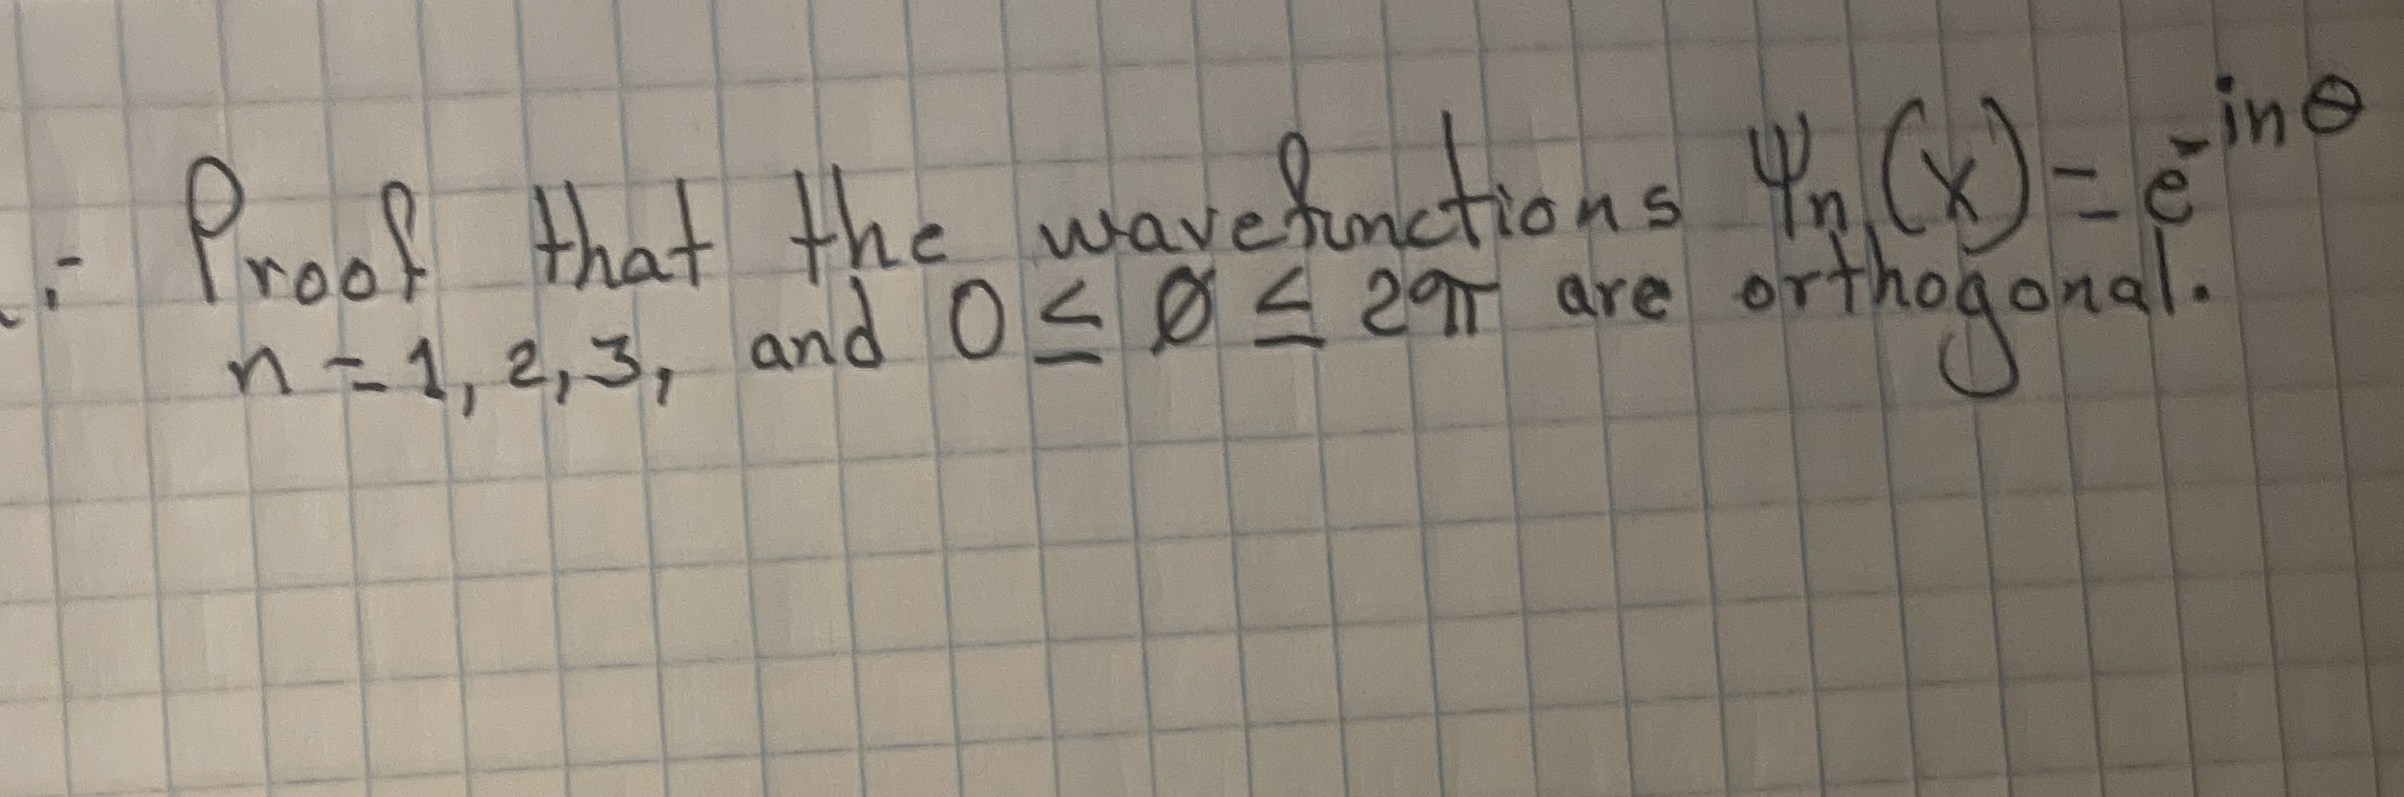 :- Proof that the wavefunctions Ψn(x) = e^-inθ
n = 1, 2, 3, and 0 ≤ Ø ≤ 2π are orthogonal.